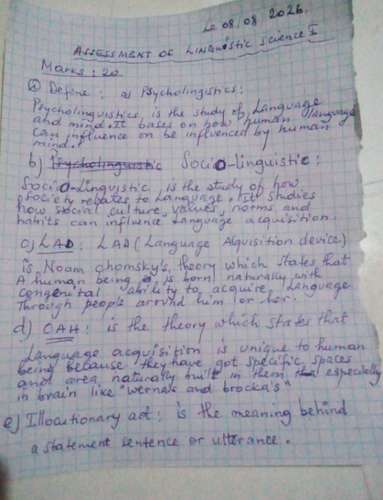 Le 08/08 2026.
ASSESSMENT OF LINGUISTIC SCIENCE I
Marks: 20
① Define: a) Psycholingistics:
Psycholinguistics, is the study of Language
and mind. It bases on how human language
can influence on be influenced by human
mind.
b) Psycholinguistic Socio-linguistic:
Socio-Linguistic, is the study of how
society relates to Language. It studies
how social culture, values, norms and
habits can influence Language acquisition.
c) LAD: LAD (Language Alquisition device)
is Noam Chomsky's, theory which states that
A human being is born naturally with
congenital ability to acquire Language
Through people around him or her.
d) CAH: is the theory which states that
Language acquisition is unique to human
being because they have got specific spaces
and area naturally built in them especially
in brain like "Wernas and brocka's"
e) Illocutionary act: is the meaning behind
a statement sentence or utterance.